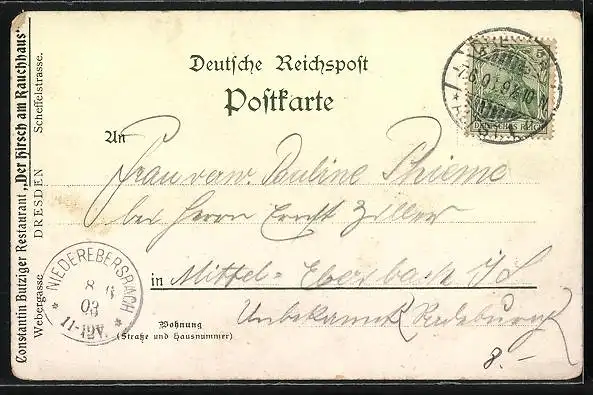 Deutsche Reichspost
Postkarte
An
Frau verw. Pauline Thieme
bei Herrn Ernst Ziller
in Mittel-Ebersbach i/S
Unbekannt (Radeburg)
Wohnung
(Straße und Hausnummer)
8.-
Constantin Butziger Restaurant „Der Hirsch am Rauchhaus"
Webergasse DRESDEN Scheffelstrasse.
DRESDEN
7.6.03
DEUTSCHES REICH
* NIEDEREBERSBACH *
8 6
03
11-12V.